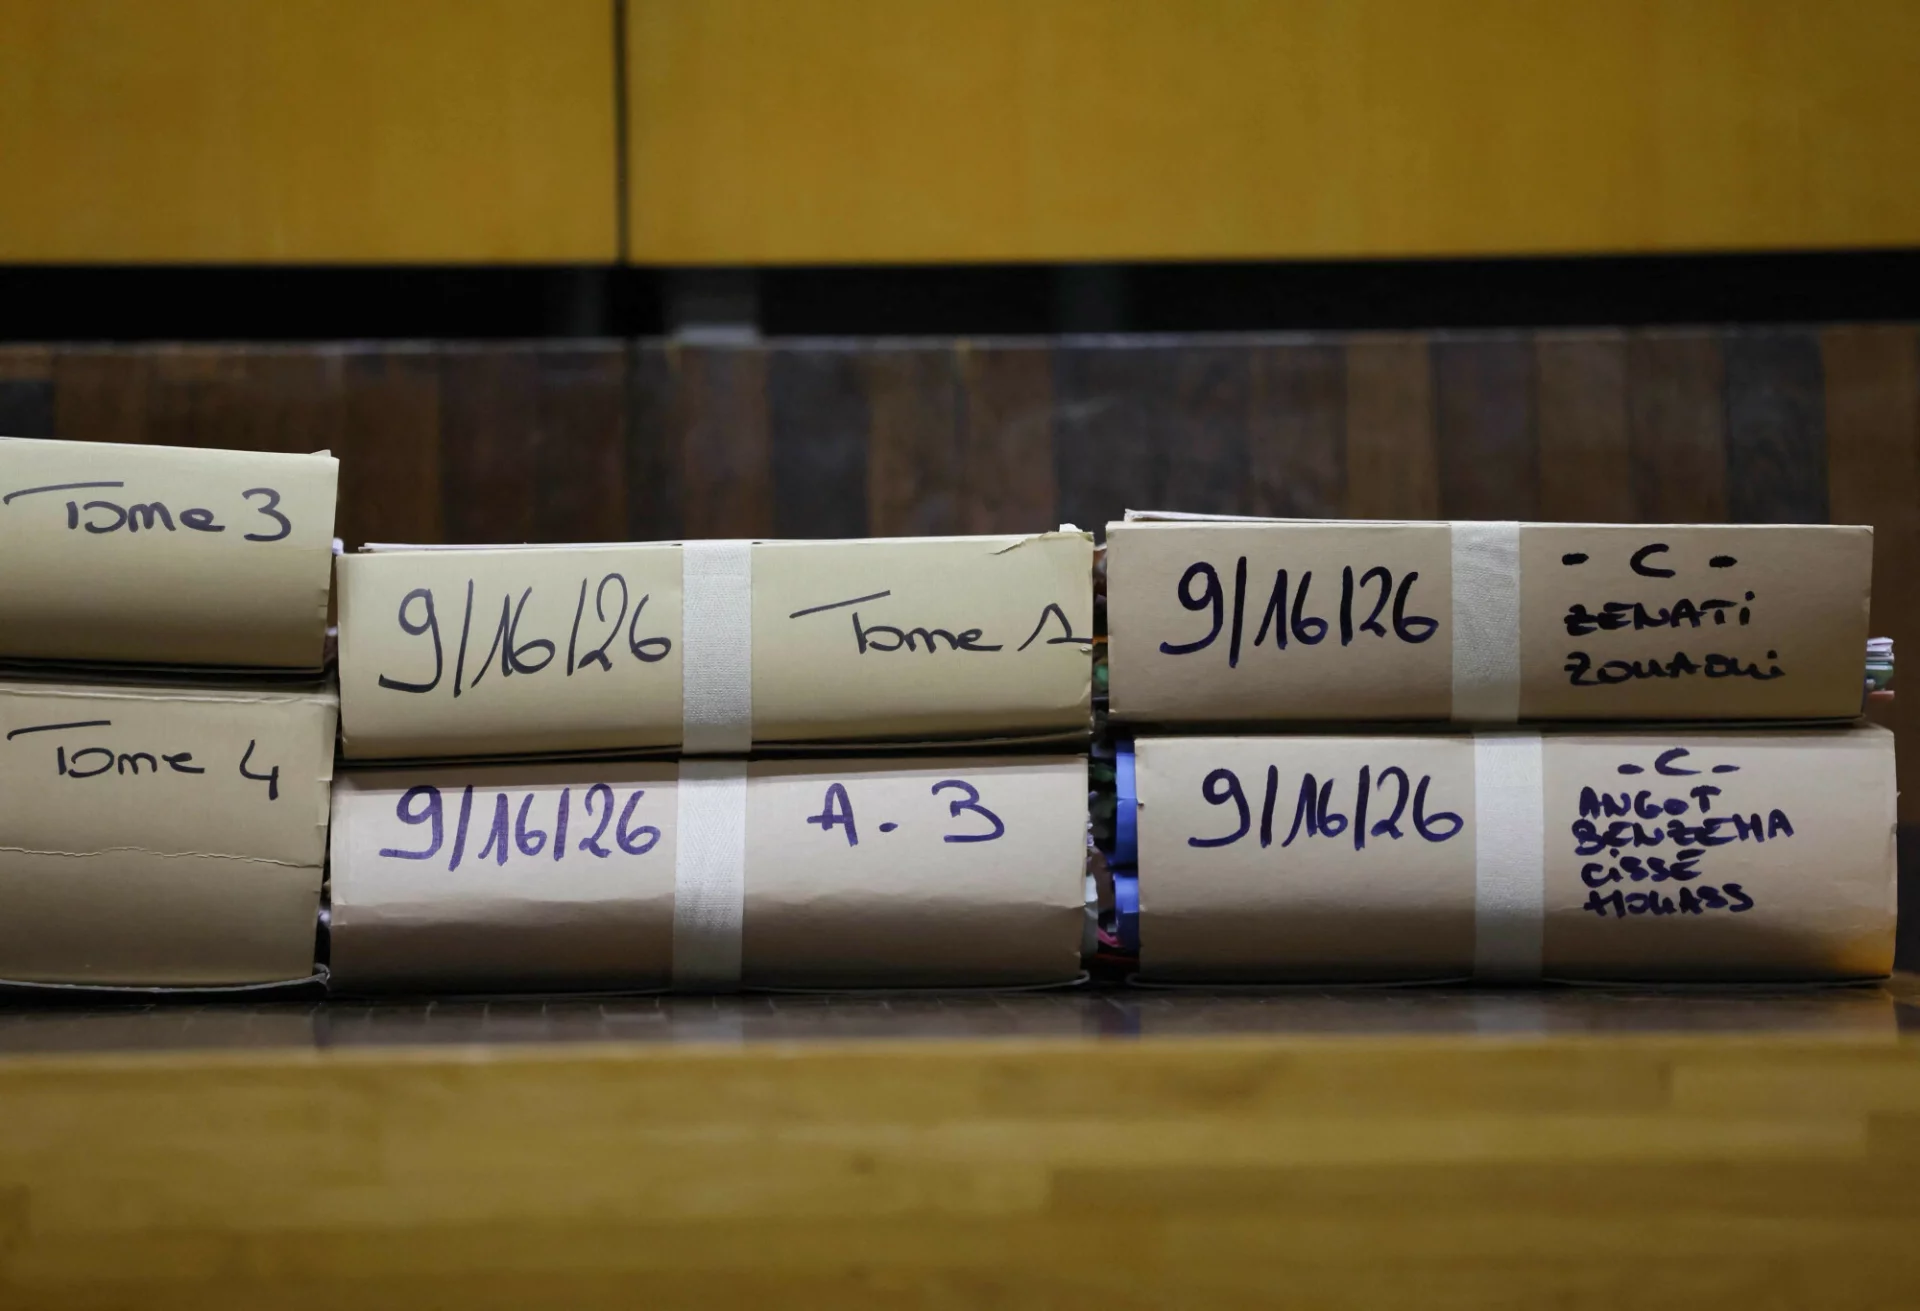 Tome 3
Tome 4
9/16/26 Tome 1
9/16/26 A. B
9/16/26 - C -
ZENATi
ZOUAOui
9/16/26 - C -
ANGOT
BENZEMA
CiSSE
HOUASS